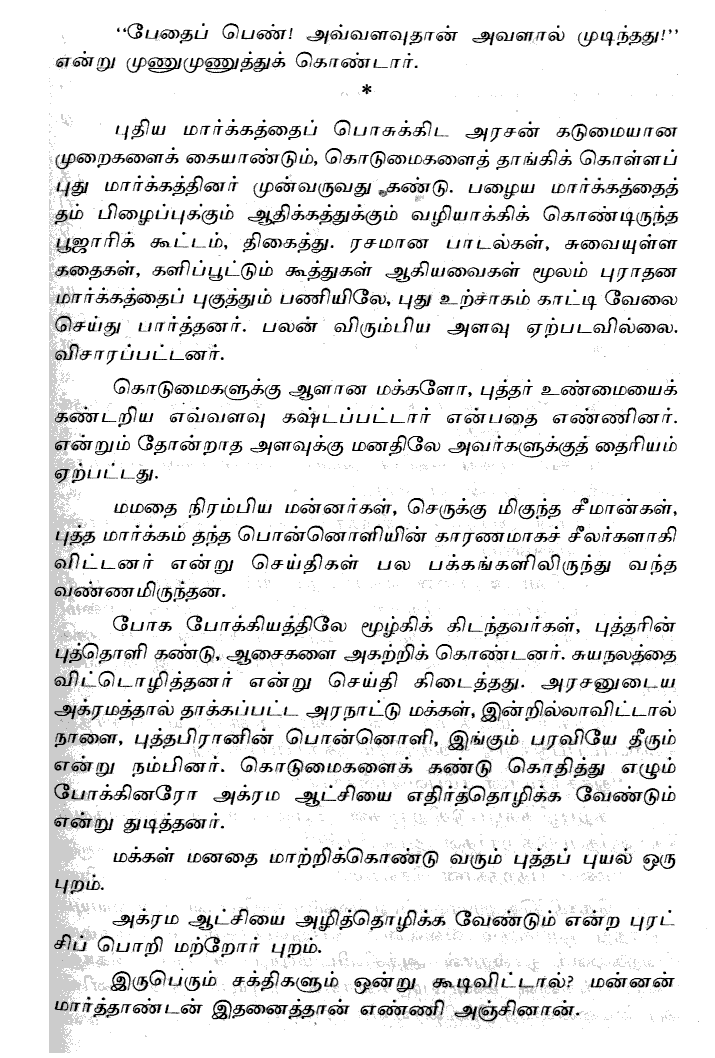 “பேதைப் பெண்! அவ்வளவுதான் அவளால் முடிந்தது!”
என்று முணுமுணுத்துக் கொண்டார்.
*
புதிய மார்க்கத்தைப் பொசுக்கிட அரசன் கடுமையான
முறைகளைக் கையாண்டும், கொடுமைகளைத் தாங்கிக் கொள்ளப்
புது மார்க்கத்தினர் முன்வருவது கண்டு. பழைய மார்க்கத்தைத்
தம் பிழைப்புக்கும் ஆதிக்கத்துக்கும் வழியாக்கிக் கொண்டிருந்த
பூஜாரிக் கூட்டம், திகைத்து. ரசமான பாடல்கள், சுவையுள்ள
கதைகள், களிப்பூட்டும் கூத்துகள் ஆகியவைகள் மூலம் புராதன
மார்க்கத்தைப் புகுத்தும் பணியிலே, புது உற்சாகம் காட்டி வேலை
செய்து பார்த்தனர். பலன் விரும்பிய அளவு ஏற்படவில்லை.
விசாரப்பட்டனர்.
கொடுமைகளுக்கு ஆளான மக்களோ, புத்தர் உண்மையைக்
கண்டறிய எவ்வளவு கஷ்டப்பட்டார் என்பதை எண்ணினர்.
என்றும் தோன்றாத அளவுக்கு மனதிலே அவர்களுக்குத் தைரியம்
ஏற்பட்டது.
மமதை நிரம்பிய மன்னர்கள், செருக்கு மிகுந்த சீமான்கள்,
புத்த மார்க்கம் தந்த பொன்னொளியின் காரணமாகச் சீலர்களாகி
விட்டனர் என்று செய்திகள் பல பக்கங்களிலிருந்து வந்த
வண்ணமிருந்தன.
போக போக்கியத்திலே மூழ்கிக் கிடந்தவர்கள், புத்தரின்
புத்தொளி கண்டு, ஆசைகளை அகற்றிக் கொண்டனர். சுயநலத்தை
விட்டொழித்தனர் என்று செய்தி கிடைத்தது. அரசனுடைய
அக்ரமத்தால் தாக்கப்பட்ட அரநாட்டு மக்கள், இன்றில்லாவிட்டால்
நாளை, புத்தபிரானின் பொன்னொளி, இங்கும் பரவியே தீரும்
என்று நம்பினர். கொடுமைகளைக் கண்டு கொதித்து எழும்
போக்கினரோ அக்ரம ஆட்சியை எதிர்த்தொழிக்க வேண்டும்
என்று துடித்தனர்.
மக்கள் மனதை மாற்றிக்கொண்டு வரும் புத்தப் புயல் ஒரு
புறம்.
அக்ரம ஆட்சியை அழித்தொழிக்க வேண்டும் என்ற புரட்
சிப் பொறி மற்றோர் புறம்.
இருபெரும் சக்திகளும் ஒன்று கூடிவிட்டால்? மன்னன்
மார்த்தாண்டன் இதனைத்தான் எண்ணி அஞ்சினான்.